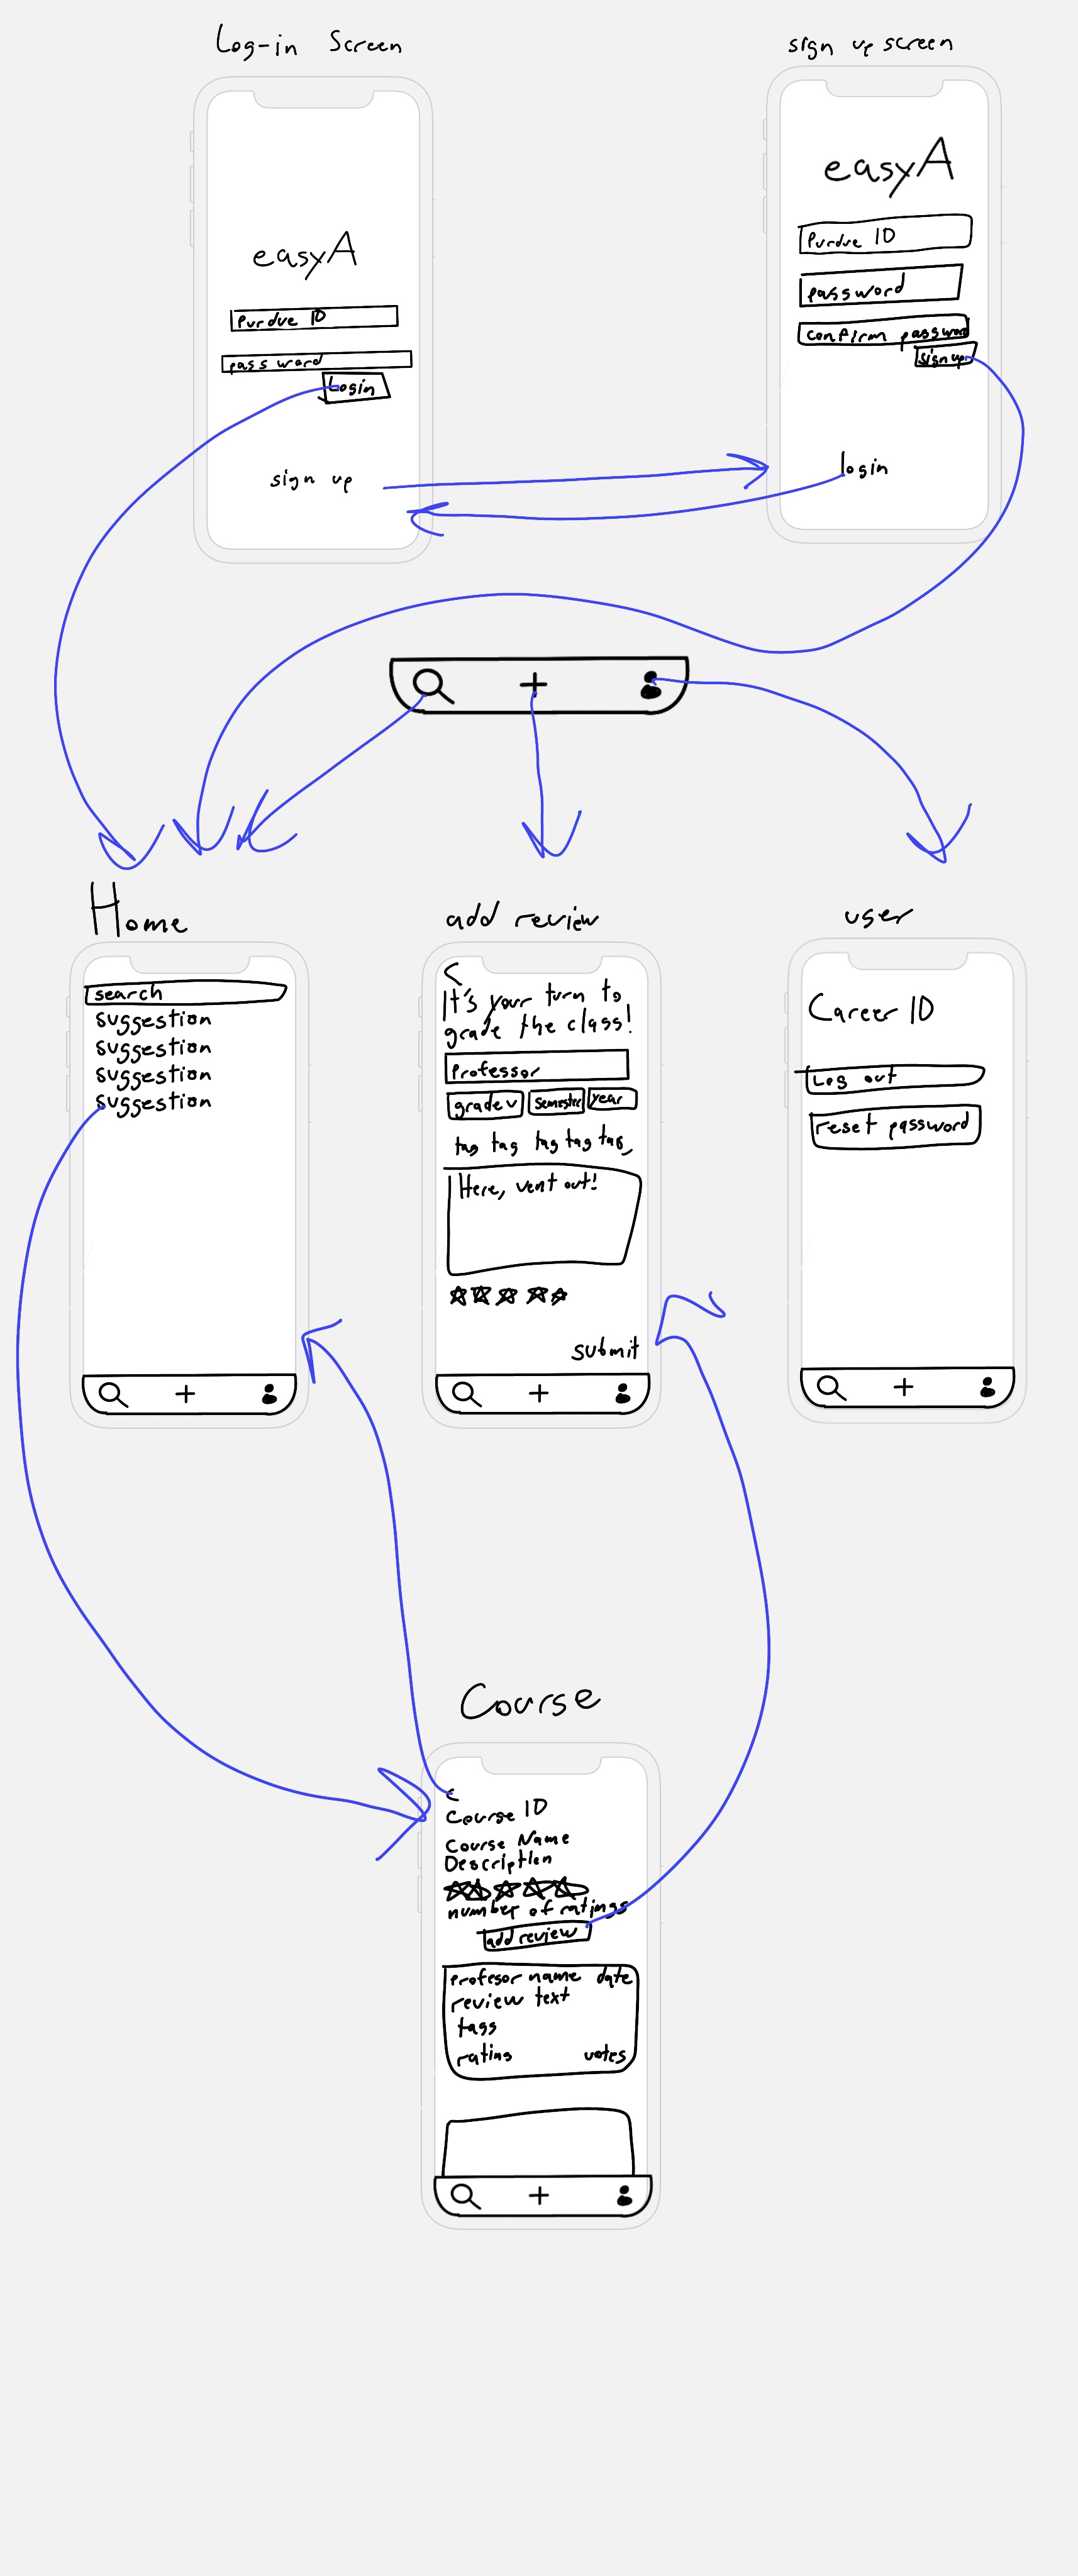 Log-in Screen
easyA
Purdue ID
password
Login
sign up
sign up screen
easyA
Purdue ID
password
confirm password
sign up
login
Home
search
suggestion
suggestion
suggestion
suggestion
add review
It's your turn to
grade the class!
Professor
grade v semester year
tag tag tag tag tag
Here, vent out!
submit
user
Career ID
Log out
reset password
Course
Course ID
Course Name
Description
number of ratings
add review
Profesor name date
review text
tags
rating votes